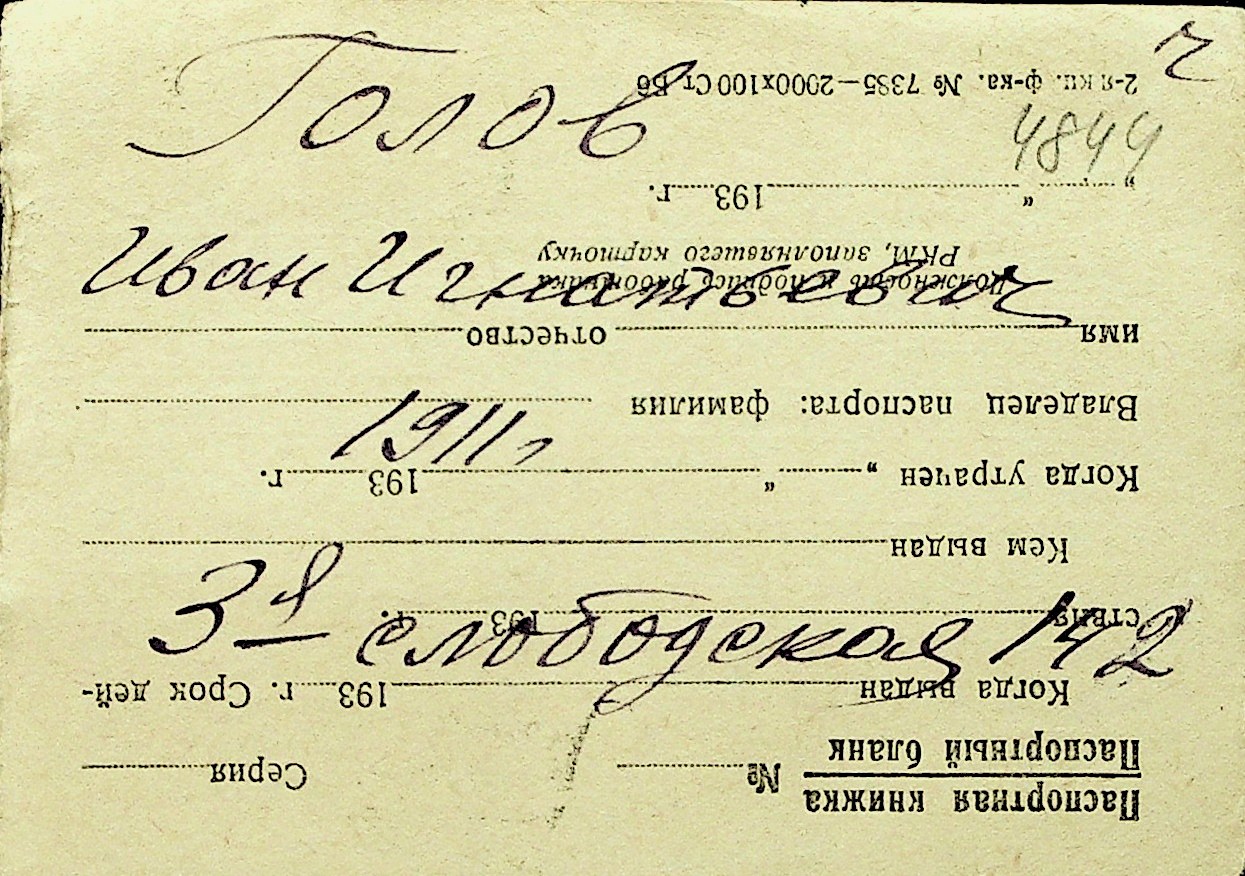 Голов
Иван Игнатьевич
1911 г
3я слободская 142
4844
ч
Паспортная книжка
Паспортный бланк
№ Серия
Когда выдан 193 г. Срок дей-
ствия 193 г.
Кем выдан
Когда утрачен „ “ 193 г.
Владелец паспорта: фамилия
имя отчество
Должность и подпись работника
РКМ, заполнявшего карточку
„ “ 193 г.
2-я кн. ф-ка. № 7385—2000х100 Ст Б6